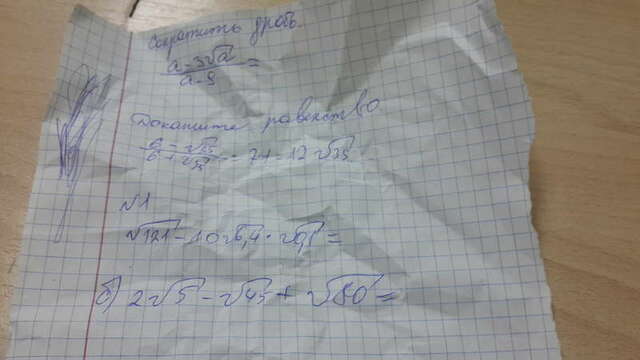 Сократить дробь.
a-3√a / a-9 =
Докажите равенство
6-√35 / 6+√35 = 71-12√35
№1
√121-10√6,4·√0,1=
б) 2√5-√45+√80=